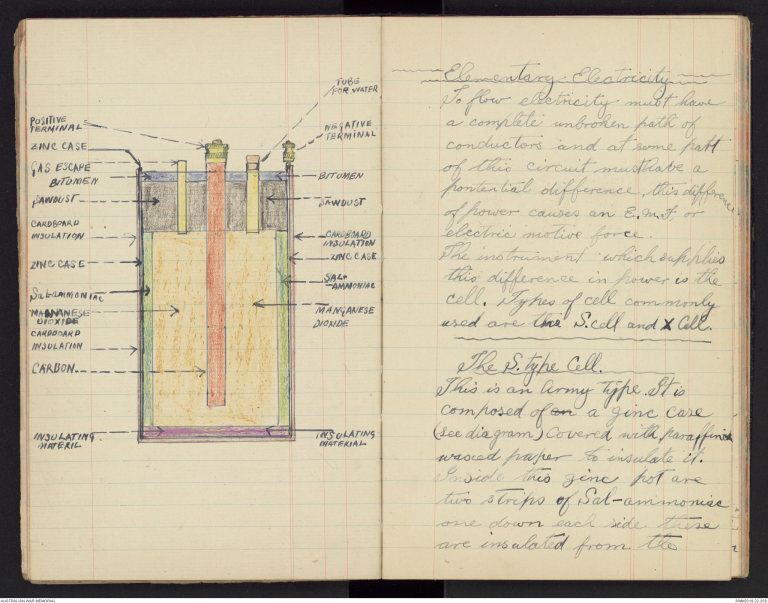 TUBE
FOR WATER
POSITIVE
TERMINAL
NEGATIVE
TERMINAL
ZINC CASE
GAS ESCAPE
BITUMEN
BITUMEN
SAWDUST
SAWDUST
CARDBOARD
INSULATION
CARDBOARD
INSULATION
ZINC CASE
ZINC CASE
SAL-
AMMONIAC
SAL-AMMONIAC
MANGANESE
DIOXIDE
MANGANESE
DIOXIDE
CARDBOARD
INSULATION
CARBON
INSULATING
MATERIL
INSULATING
MATERIAL
Elementary Electricity
To flow electricity must have
a complete unbroken path of
conductors and at some part
of this circuit must have a
pontential difference, this difference
of power causes an E.M.F. or
electric motive force.
The instrument which supplies
this difference in power is the
cell. Types of cell commonly
used are the S.cell and X Cell.
The S. type Cell.
This is an Army type. It is
composed of an a zinc case
(see diagram) covered with paraffin
waxed paper to insulate it.
Inside this zinc pot are
two strips of Sal-ammoniac
one down each side these
are insulated from the
AUSTRALIAN WAR MEMORIAL